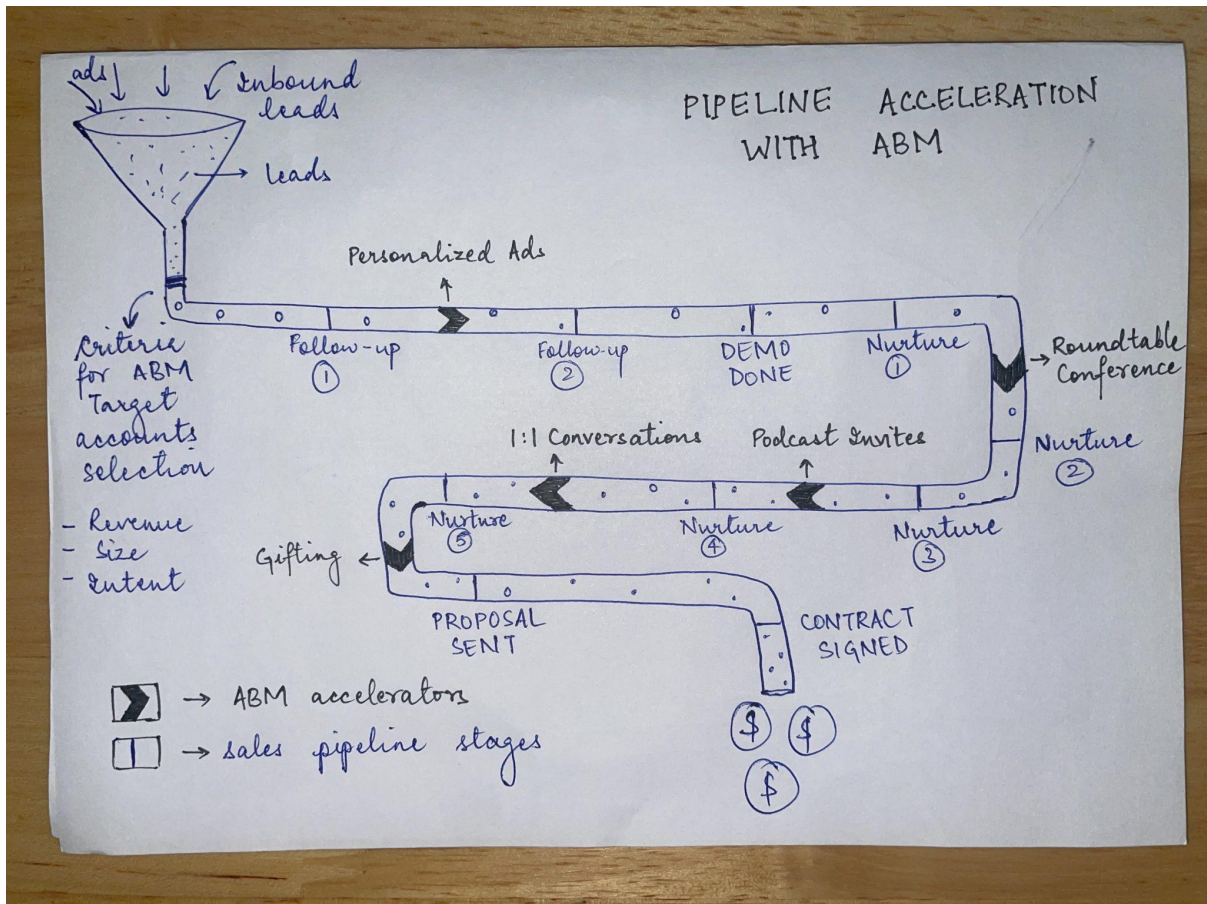 ads
Inbound
leads
leads
PIPELINE ACCELERATION
WITH ABM
Personalized Ads
Criteria
for ABM
Target
accounts
selection
- Revenue
- Size
- Intent
Follow-up
1
Follow-up
2
DEMO
DONE
Nurture
1
Roundtable
Conference
Nurture
2
Nurture
3
Podcast Invites
Nurture
4
1:1 Conversations
Nurture
5
Gifting
PROPOSAL
SENT
CONTRACT
SIGNED
$ $
$
→ ABM accelerators
→ sales pipeline stages